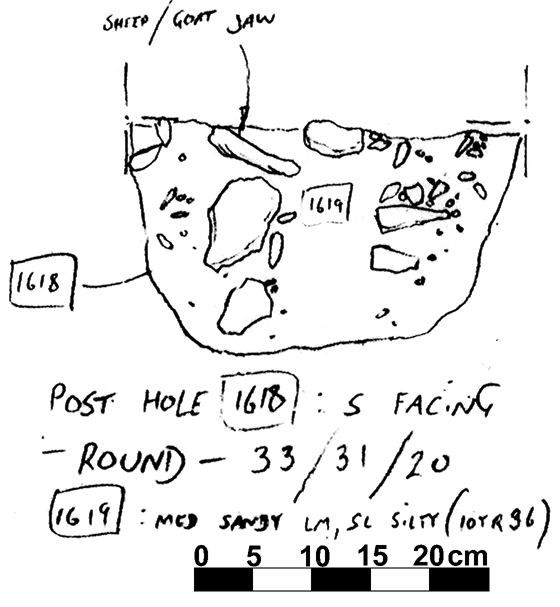 SHEEP/GOAT JAW
1619
1618
POST HOLE 1618 : S FACING
- ROUND - 33/31/20
1619 : MED SANDY LM, SL SILTY (10YR36)
0 5 10 15 20cm